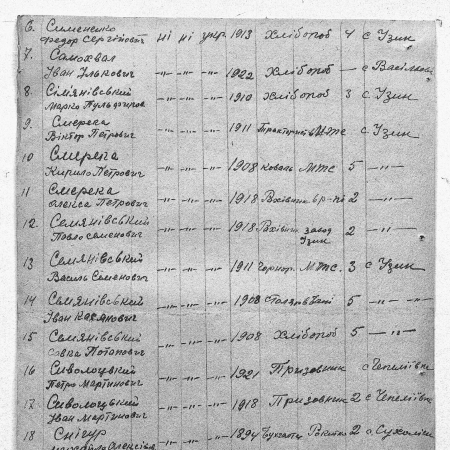 6. Симененко
Федор Сергійович ні ні укр. 1913 Хлібороб 4 с Узин
7. Самохвал
Іван Ількович —"— —"— —"— 1922 Хлібороб — с Васілков
8. Сімянівський
Марко —"— —"— —"— 1910 Хлібороб 3 с Узин
9. Смерека
Віктор Петрович —"— —"— —"— 1911 МТС с Узин
10 Смерека
Кирило Петрович —"— —"— —"— 1908 Коваль МТС 5 —"—
11 Смерека
Олекса Петрович —"— —"— —"— 1918 2 —"—
12. Семянівський
Павло Семенович —"— —"— —"— 1918 завод 2 —"—
Узин
13 Семянівський
Василь Семенович —"— —"— —"— 1911 МТС. 3 с Узин
14 Семянівський
Іван Касянович —"— —"— —"— 1908 5 —"—
15 Семянівський
Савка Потапович —"— —"— —"— 1908 Хлібороб 5 —"—
16 Сиволоцький
Петро Мартинович —"— —"— —"— 1921 Призовник с Чепеліївка
17. Сиволоцький
Іван Мартинович —"— —"— —"— 1918. Призовник 2 с Чепеліївка
18 Снігур
—"— —"— —"— 1894 2 с. Сухоліси